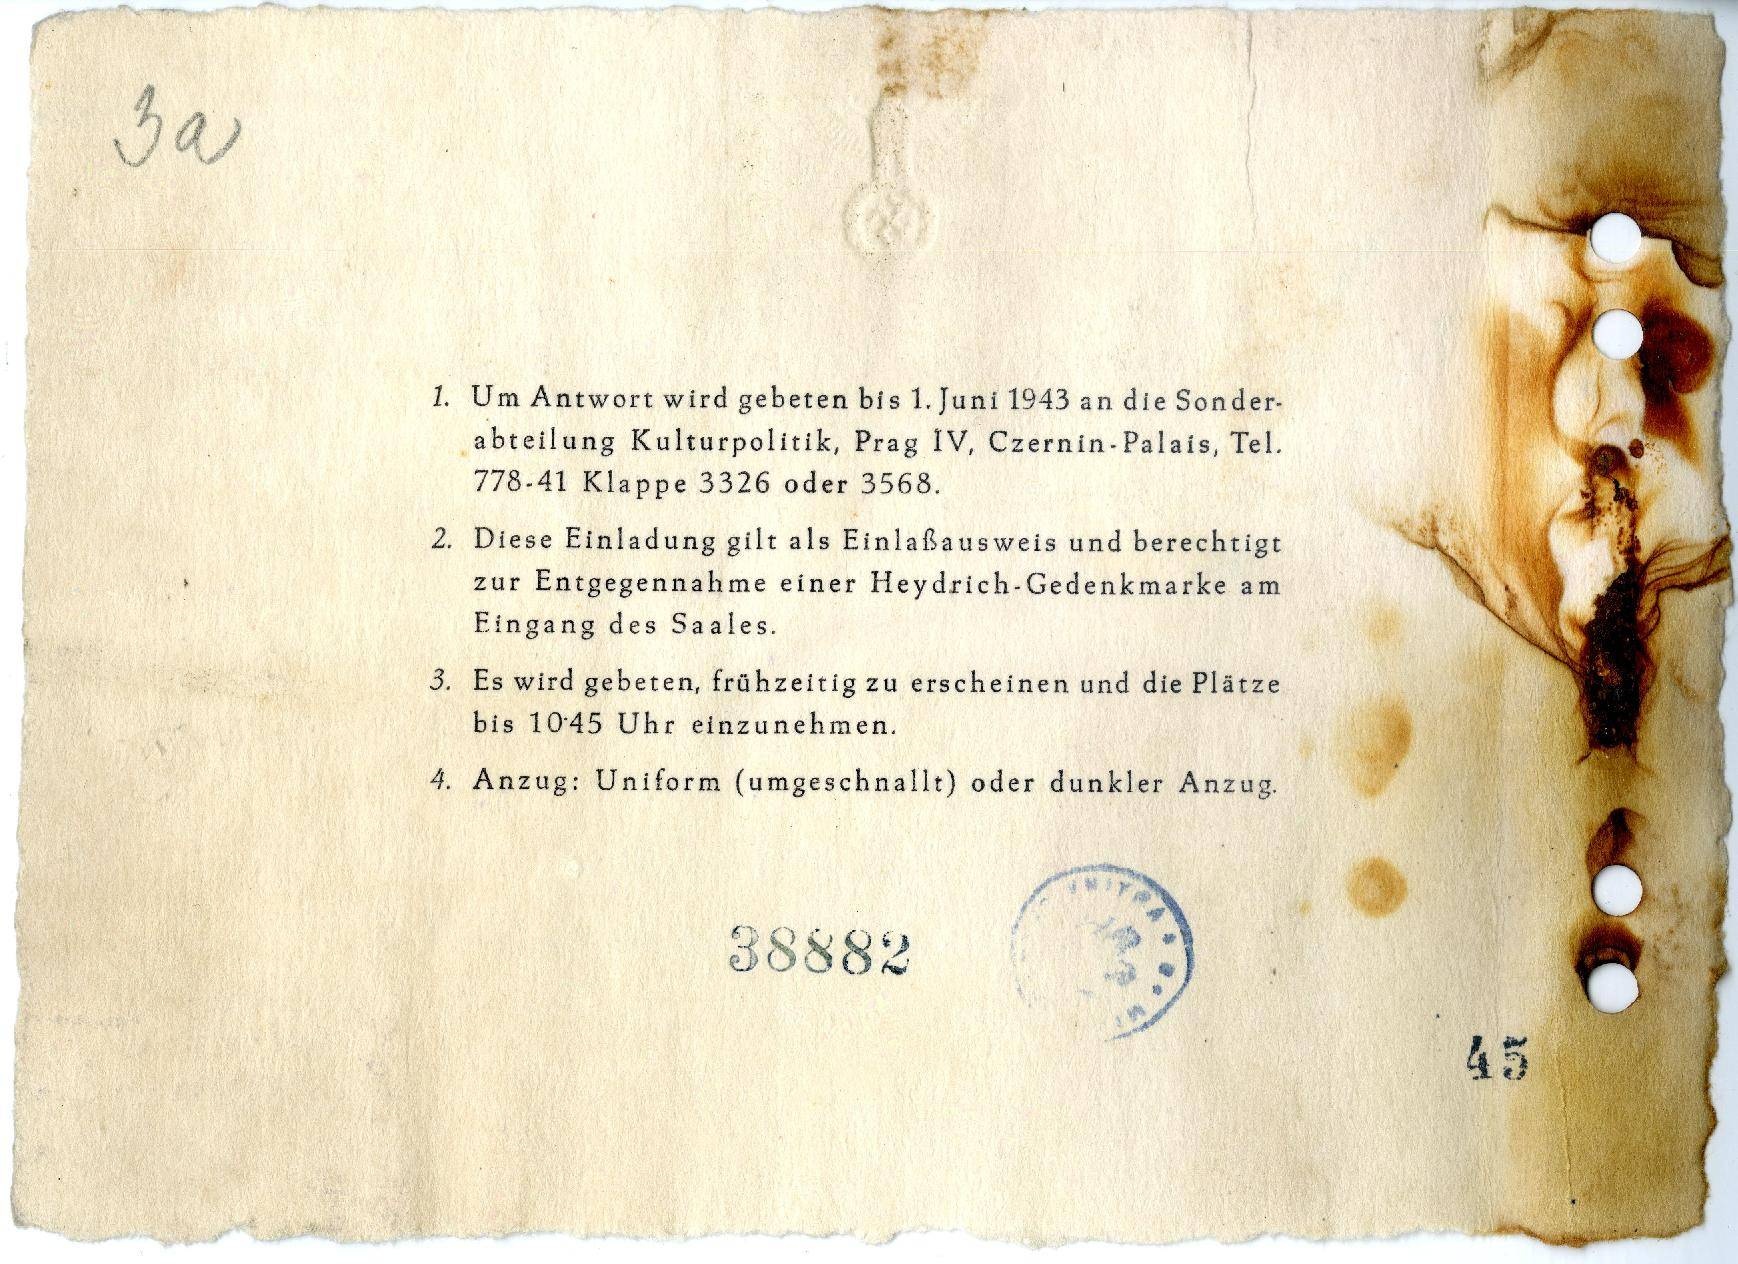 3a
1. Um Antwort wird gebeten bis 1. Juni 1943 an die Sonder-
abteilung Kulturpolitik, Prag IV, Czernin-Palais, Tel.
778-41 Klappe 3326 oder 3568.
2. Diese Einladung gilt als Einlaßausweis und berechtigt
zur Entgegennahme einer Heydrich-Gedenkmarke am
Eingang des Saales.
3. Es wird gebeten, frühzeitig zu erscheinen und die Plätze
bis 10·45 Uhr einzunehmen.
4. Anzug: Uniform (umgeschnallt) oder dunkler Anzug.
38882
45